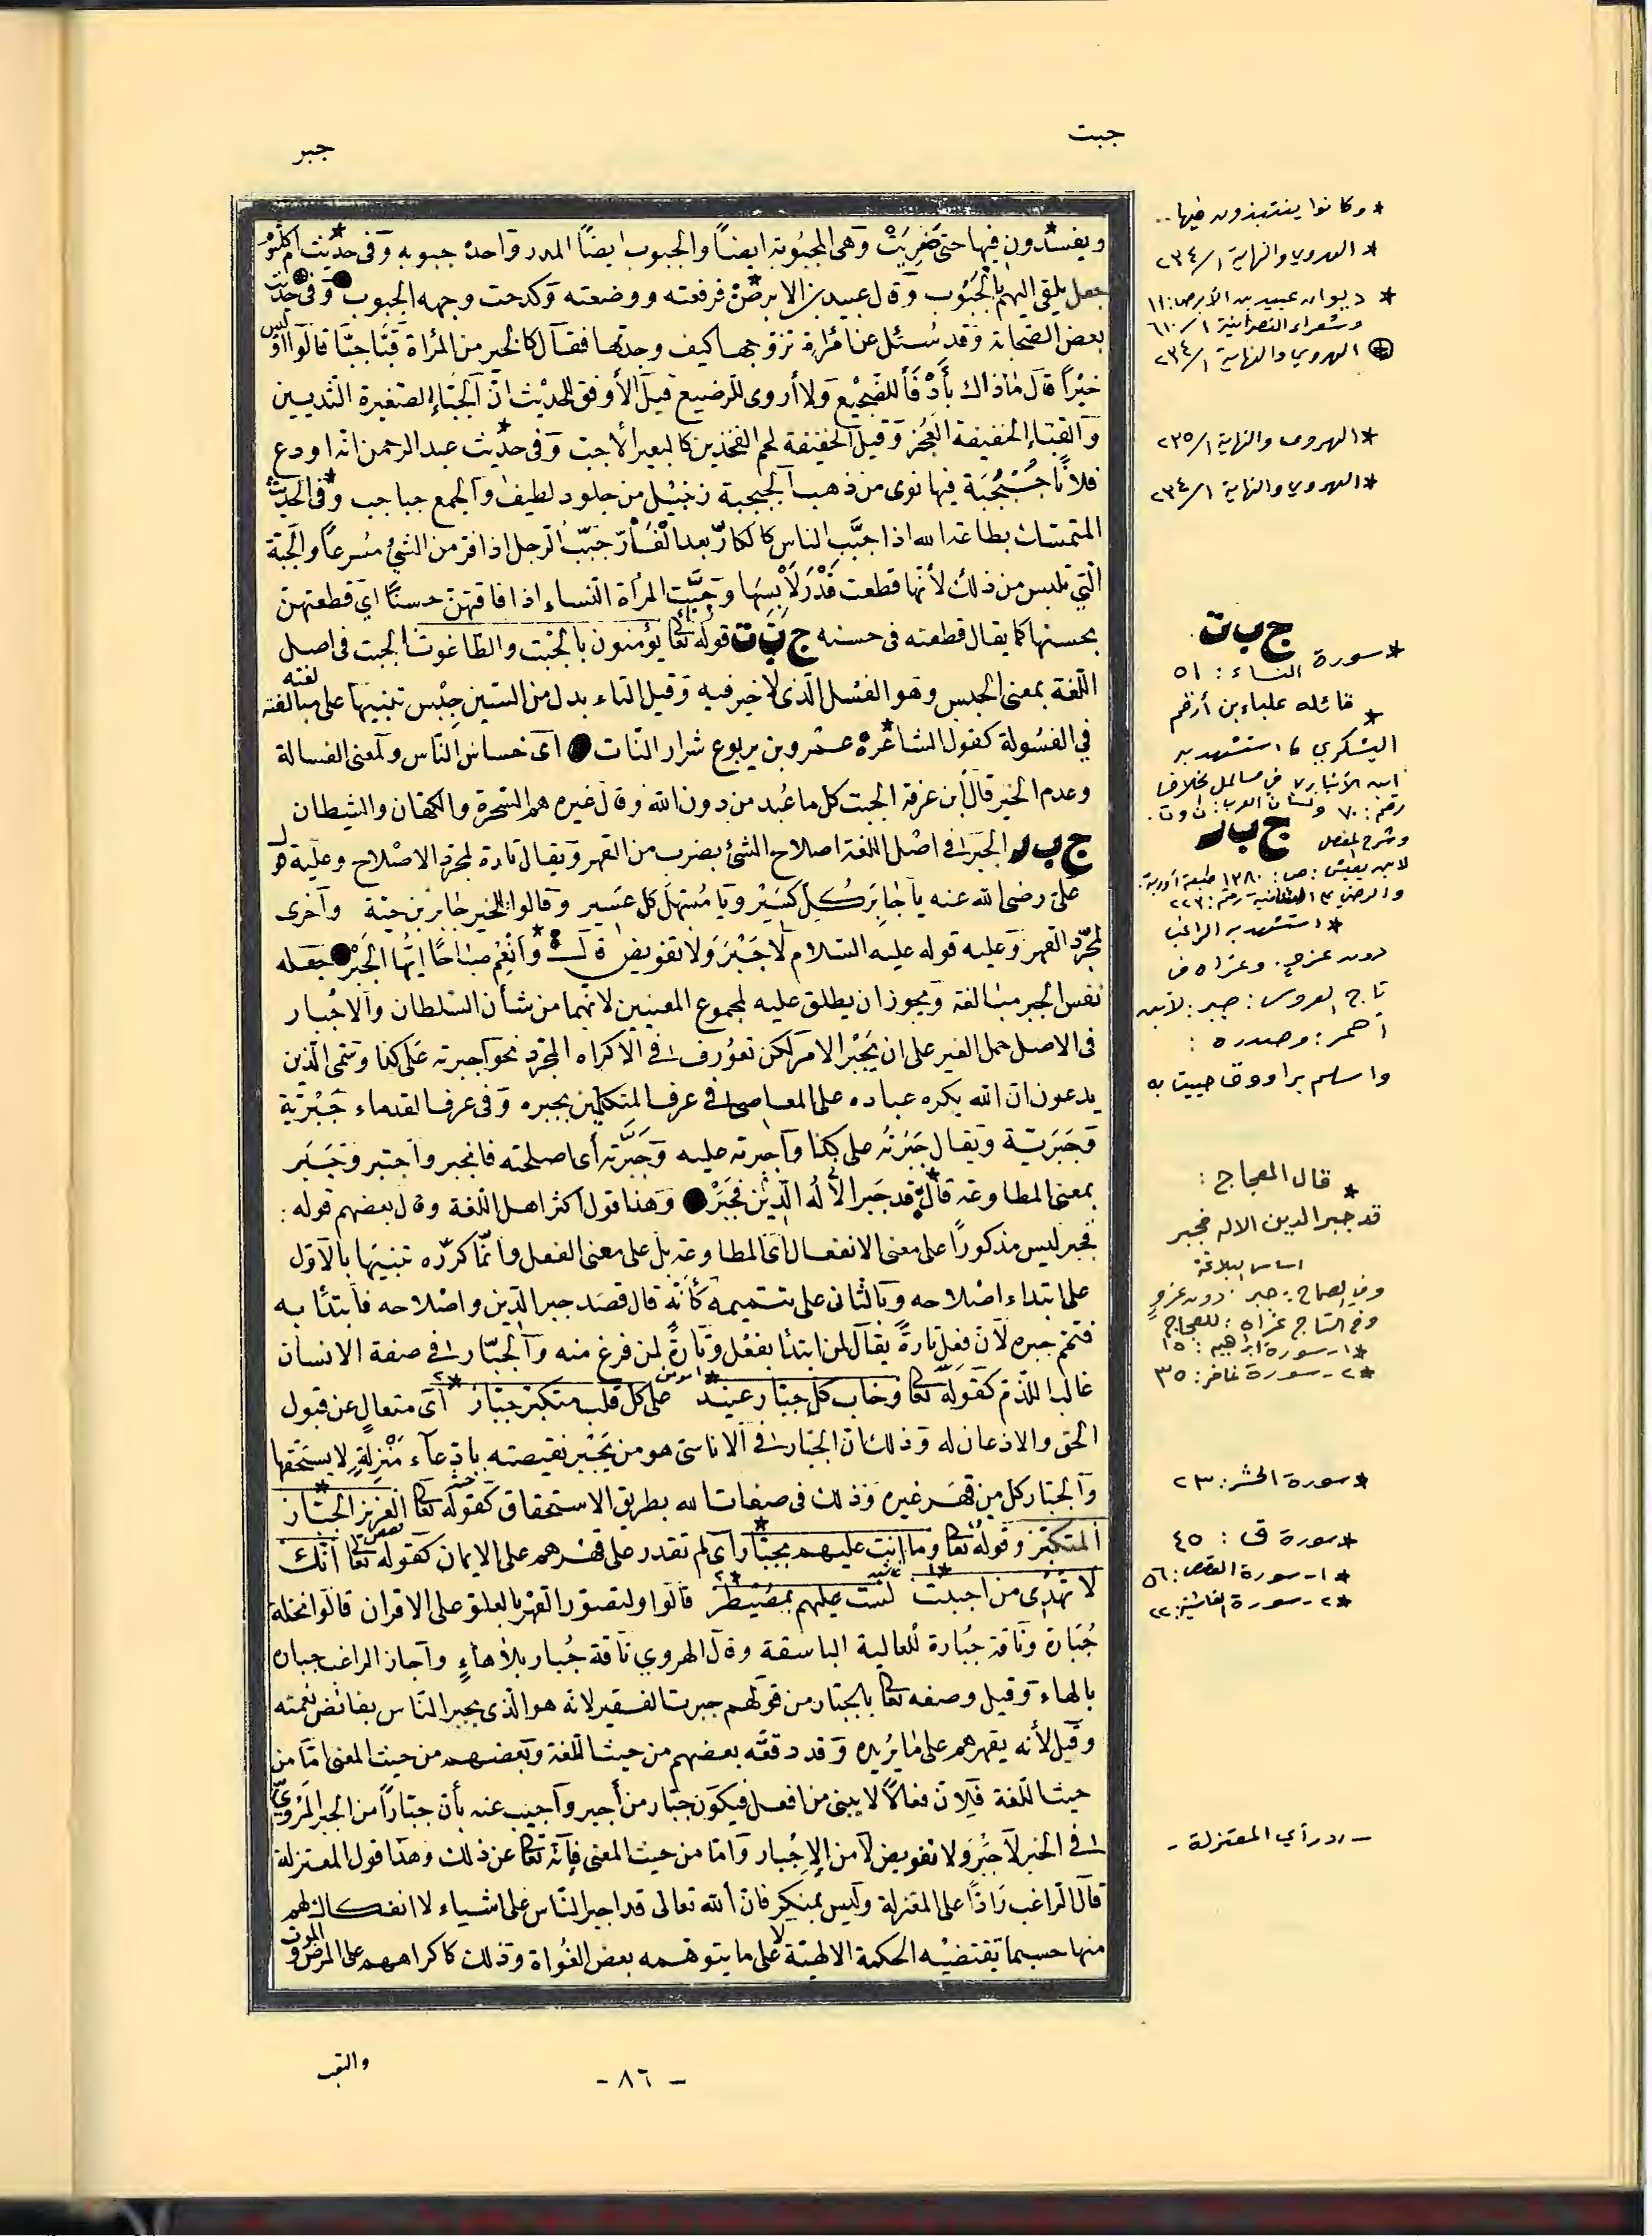 جبت
جبر
ويفسدون فيها حتى ضَرِيَتْ وهى المجبوبة ايضاً والجبوب ايضاً المدر واحدة جبوبه وفى حديث ام كلثوم
جعل يلقى اليهم بالجَبُوب وقال عبيد بن الابرص فرفعته ووضعته وكدحت وجهه الجبوب وفى حديث
بعض الصحابة وقد سُئل عن امْرأة تزوجها كيف وجدتها فقال كالخير من المرأة قبّاء جبّاء قالوا أوليس
خيْراً قال ما ذاك بأَدْفَأَ للضجيْع ولا أروى للرضيع قيل الأوفق للحديْث انّ الجبّاء الصغيرة الثديين
والقبّاء الخفيفة العَجُز وقيل الخفيفة لحم الفخذين كالبعير الأجبّ وفى حديث عبد الرحمن انه اودع
فلاناً جُبْجُبَة فيها نوى من ذهب الجبجبة زنبيل من جلود لطيف والجمع جباجب وفى الحديث
المتمسك بطاعة الله اذا جبَّب الناس كالكارّ بعد الْفَارّ جَبّبَ الرجل اذا فرّ من الشئ مُسرعاً والجبّة
التي تلبس من ذلك لأنها قطعت قَدْرَ لَابِسِهَا وجَبَّت المرأة النساء اذا فاقتهنّ حسناً اي قطعتهنّ
بحسنها كما يقال قطعته فى حسنه ج ب ت قوله تعا يؤمنون بالجبْت والطاغوت الجبت فى اصل
اللغة بمعنى الجبس وهو الفسْل الّذى لا خير فيه وقيل التاء بدل من السّين جِبْس تنبيهاً على مبالغته
في الفسُولة كقول الشاعرة عمْرو بن يربوع شرار النّات اى خساس النّاس ولمعنى الفسالة
وعدم الخير قال ابن عرفة الجبت كل ما عُبد من دون الله وقال غيره هم السّحرة والكهّان والشيطان
ج ب ر الجَبْر فى اصْل اللغة اصلاح الشئ بضرب من القهر ويقال تارة لمجرّد الاصْلاح وعليه قول
علىّ رضى الله عنه يا جابِرَ كُلِ كَسِيْرٍ ويا مُسَهِّلَ كل عَسير وقالوا للخبز جابر بن حبّة وأخرى
لمجرّد القهر وعليه قوله عليه السّلام لا جَبْرَ ولا تفويض قال وَانْعِم صباحًا ايُّهَا الجَبْر جعله
نفس الجبر مبالغة ويجوز ان يطلق عليه لمجموع المعنيين لانهما من شأن السّلطان والاجْبار
فى الاصل حمل الغير على ان يَجْبُر الامر لكن تعوُرف فى الاكراه المجرّد نحو اجبرته على كذا وتسمّى الّذين
يدعون ان الله يكره عباده على المعاصى فى عرف المتكلمين مجبره وفى عرف القدماء جَبْرِيّة
وجَبَرِيّة ويقال جَبَرْتُه على كذا واجبرته عليه وجَبَّرْتُه أى اصلحته فانجبر واجتبر وجَبَر
بمعنى المطاوعة قال قد جَبر الأله الدّيْن فجَبَرْ وهذا قول اكثر اهل اللغة وقال بعضهم قوله :
فجبر ليس مذكوراً على معنى الانفعال اى المطاوعة بل على معنى الفعل وانّما كرّره تنبيهاً بالاوّل
على ابتداء اصْلاحه وبالثانى على تتميمه كأنّه قال قصَد جبر الدّين واصْلاحه فابتدأ به
فتمّم جبره لأن فعل تارةً يقال لمن ابتدأ بفعْل وتارةً لمن فرغ منه والجبّار فى صفة الانسان
غالبا للذّم كقوله تعا وخاب كل جبّار عنيد على كل قلب متكبّر جبّار أى متعالٍ عن قبول
الحق والاذعان له وذلك ان الجبّار فى الاناسىّ هو من يَجْبُر نقيصته بادّعاء مَنْزِلةٍ لا يستحقها
والجبّار كل من قهَر غيره وذلك فى صفات الله بطريق الاستحقاق كقوله تعا العزيز الجبّار
المتكبّر وقوله تعا وما انت عليهم بجبّار أى لم تقدر على قهْرهم على الايمان كقوله تعا انك
لا تهْدى من احببت لست عليهم بمصيْطر قالوا ولتصوّر القهْر بالعلو على الاقران قالوا نخلة
جُبّارة وناقة جبّارة للعالية الباسقة وقال الهروي ناقة جُبار بلا هاءٍ واجاز الراغب جباره
بالهاء وقيل وصفه تعا بالجبّار من قولهم جبرت الفقير لانه هو الّذى يجبر النّاس بفائض نعمته
وقيل لأنه يقهرهم على ما يُريده وقد دفعه بعضهم من حيث اللغة وبعضهم من حيث المعنى امّا من
حيث اللغة فلانّ فعالاً لا يبنى من افعل فيكون جبّار من أجبر واجيب عنه بأن جبّاراً من الجبر المَرْويّ
فى الخبر لا جَبْرَ ولا تفويض لا من الإجْبار وامّا من حيث المعنى فإنه تعا عن ذلك وهذا قول المعتزلة
قال الراغب رادّاً على المعتزلة وليس بمنكر فان الله تعالى قد اجبر النّاس على اشياء لا انفكاك لهم
منها حسبما تقتضيْه الحكمة الالهيّة لا على ما يتوهمه بعض الغُواة وذلك كاكراههم على المرض والموت
والتعب
- ٨٦ -
* وكانوا ينتبذون فيها..
* الهروي والنهاية ١/ ٢٣٤
* ديوان عبيد بن الأبرص: ١١
وشعراء النصرانية ١/ ٦١٠
الهروي والنهاية ١/ ٢٣٤
* الهروي والنهاية ١/ ٢٣٥
* الهروي والنهاية ١/ ٢٣٤
ج ب ت
* سورة النساء: ٥١
* قائله علباء بن أرقم
اليشكري ، استشهد به
ابن الأنباري في مسائل الخلاف
رقم: ٧٠ ولسان العرب: ن و ت.
ج ب ر
وشرح المفصل
لابن يعيش: ص: ١٣٨٠ طبعة أوربة.
* استشهد به الراغب
دون عزو. وعزاه في
تاج العروس: جبر: لابن
أحمر: وصدره :
واسلم براووق حبيت به
* قال العجاج :
قد جبر الدين الاله فجبر
اساس البلاغة
وفي الصحاح: جبر. دون عزو
وفي التاج عزاه: للعجاج
* ١- سورة ابراهيم: ١٥
* ٢- سورة غافر: ٣٥
* سورة الحشر: ٢٣
* سورة ق : ٤٥
* ١- سورة القصص: ٥٦
* ٢- سورة الغاشية: ٢٢
- رد رأي المعتزلة -